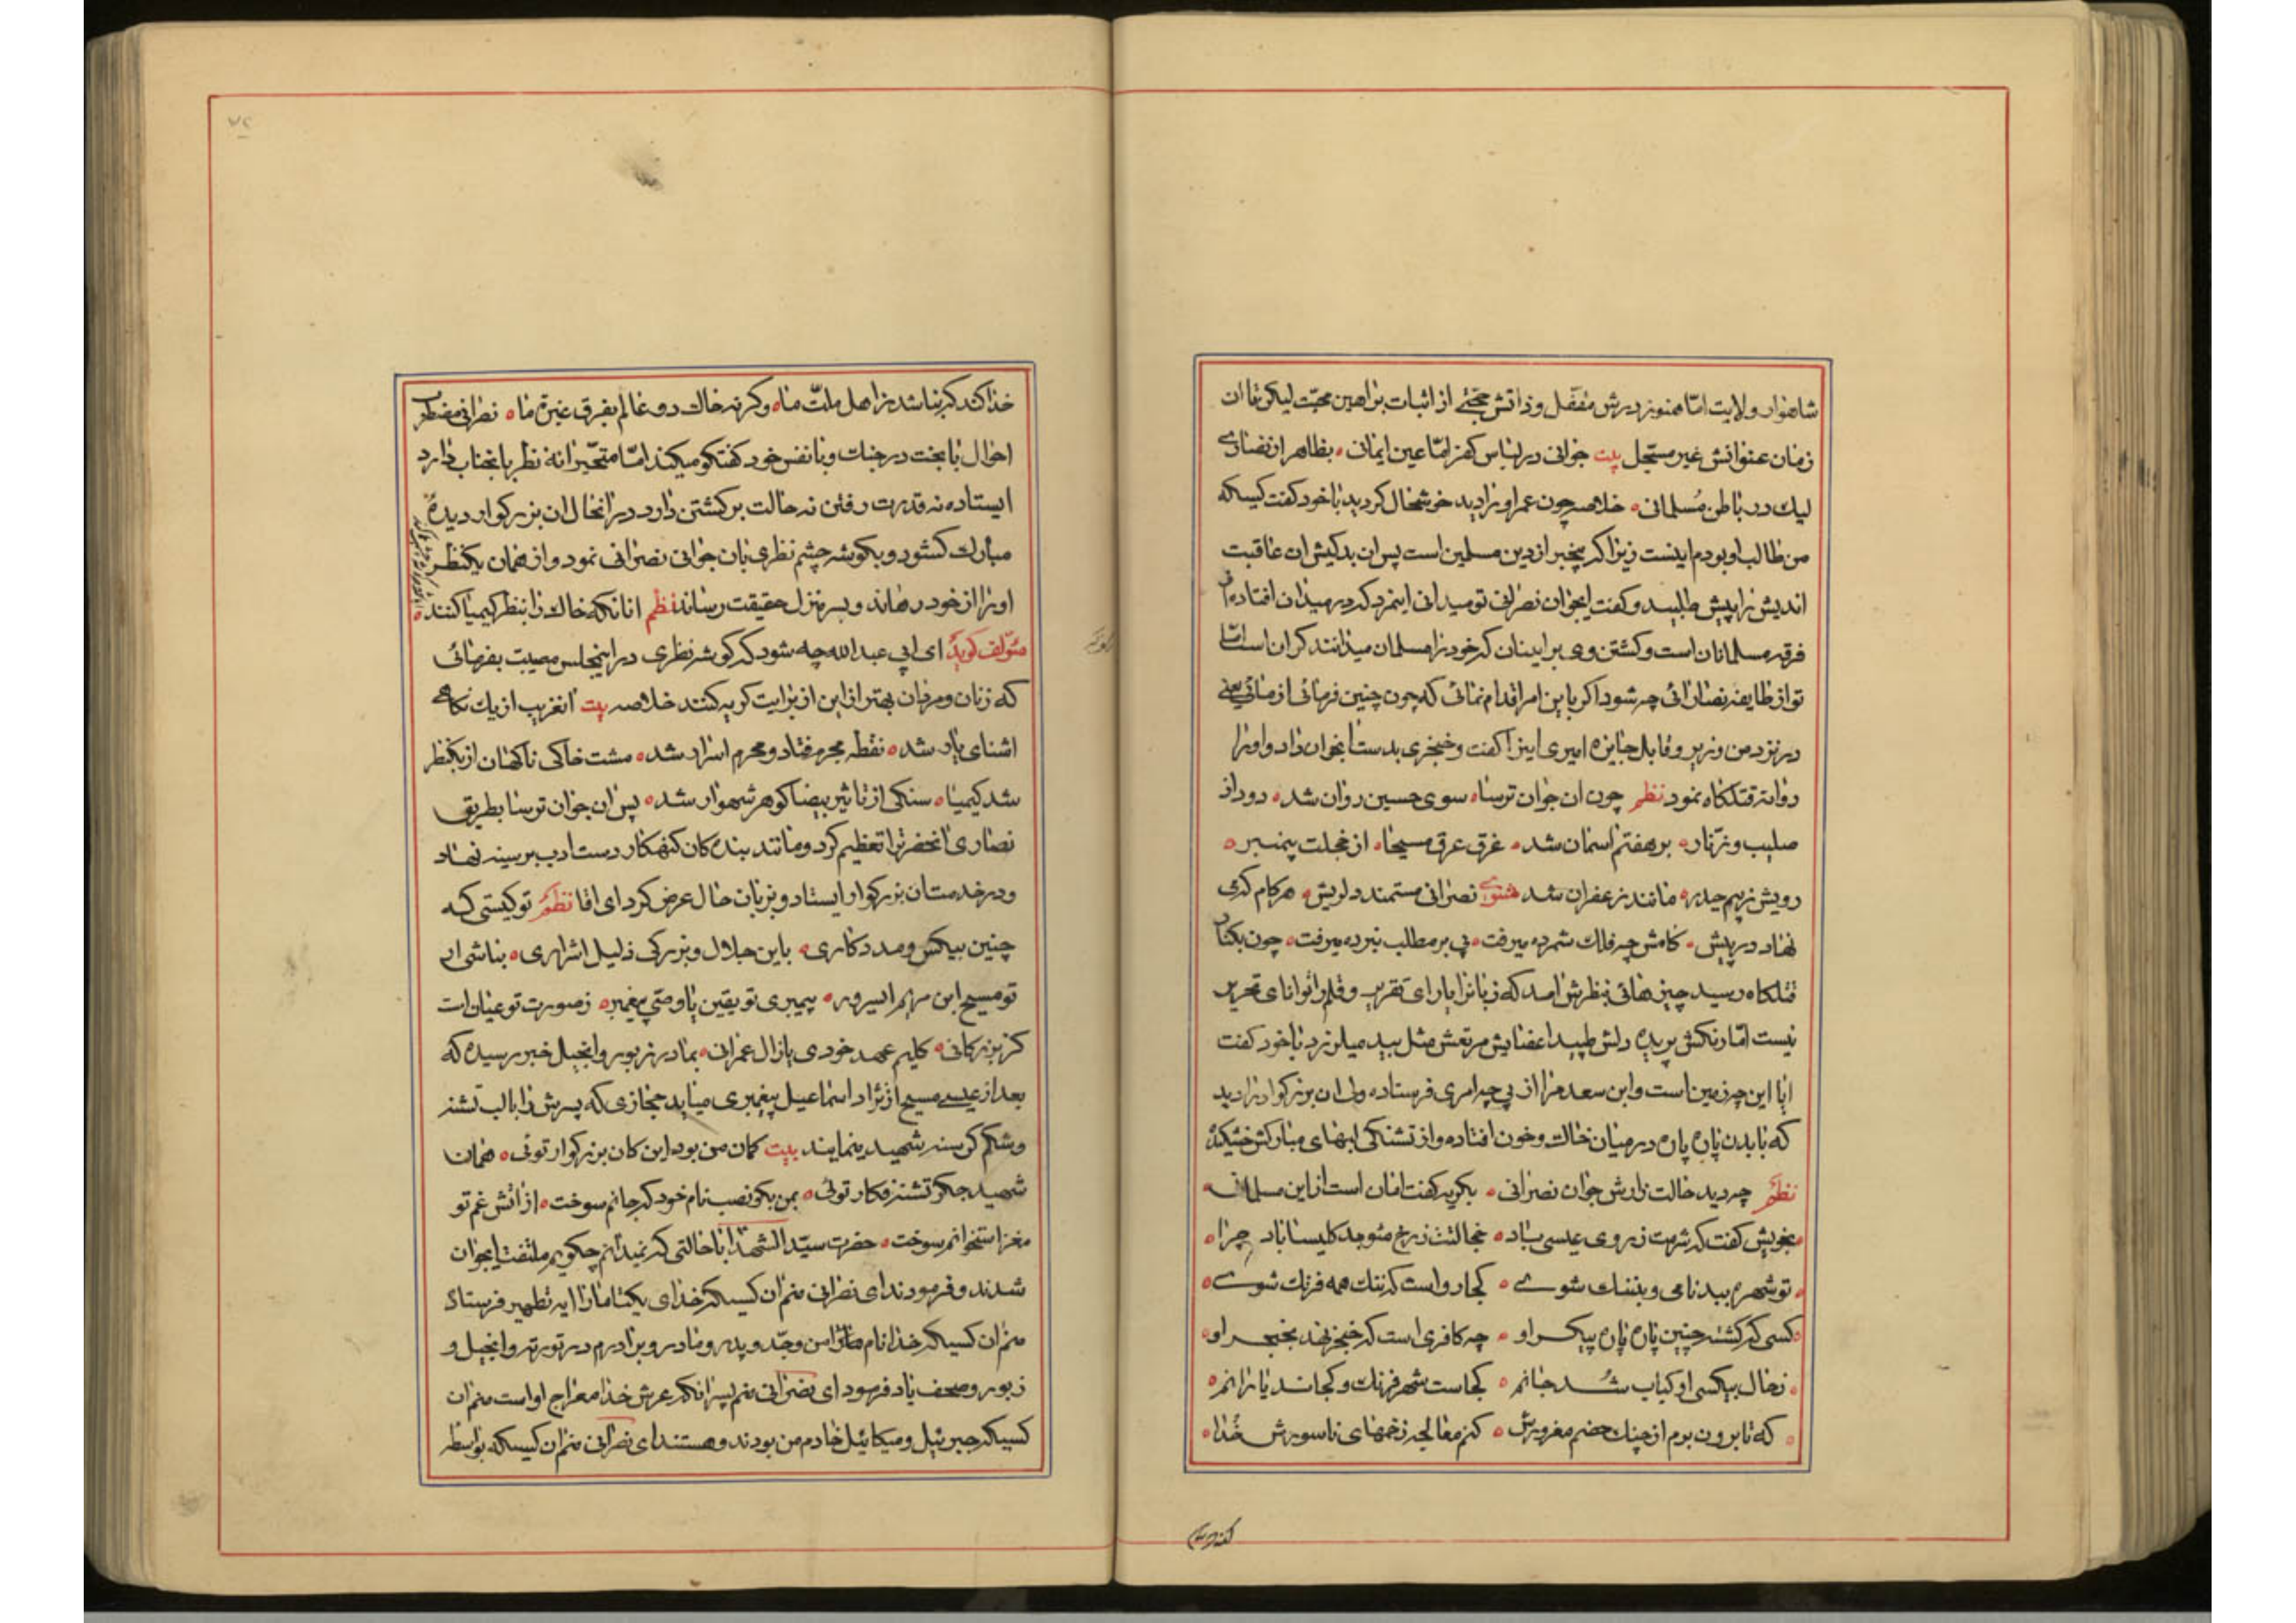 شاهوار ولایت امّا هنوز درش مقفّل و ذاتش حجّتی از اثبات براهین محبّت لیکن تا ان
زمان عنوانش غیر مسجّل بیت جوانی در لباس کفر امّا عین ایمانی بظاهر از نصاری
لیك در باطن مُسلمانی خلاصه چون عمر او را دید خوشحال کردید با خود کفت کسیکه
من طالب او بودم اینست زیرا که بیخبر از دین مسلمین است پس ان بدکیش ان عاقبت
اندیش را پیش طلبید و کفت ایجوان نصرانی تو میدانی اینمرد که در میدان افتاده از
فرقه مسلمانان است و کشتن وی بر اینان که خود را مسلمان میدانند کران است امّا
تو از طایفه نصارائی چه شود اکر باین امر اقدام نمائی که چون چنین فرمائی از مائی یعنی
در نزد من وزیر و قابل جایزه امیری اینرا کفت و خنجری بدست انجوان داد و او را
روانه قتلکاه نمود نظم چون ان جوان ترسا سوی حسین روان شد دود از
صلیب و زنّار بر هفتم اسمان شد غرق عرق مسیحا از خجلت پیمبر
رویش ز بیم حیدر مانند زعفران شد مثنوی نصرانی مستمند دلریش هر کام که می
نهاد در پیش کامش چه فلك شمرده میرفت پی بر مطلب نبرده میرفت چون بکنار
قتلکاه رسید چیزهائی بنظرش امد که زبانرا یارای تقریر و قلم را توانای تحریر
نیست امّا رنکش پریده دلش طپید اعضایش مرتعش مثل بید میلرزد با خود کفت
ایا این چه زمین است و ابن سعد مرا از پی چه امری فرستاده ولی ان بزرکوار را دید
که با بدن پاره پاره در میان خاك و خون افتاده و از تشنکی لبهای مبارکش خشکیده
نظم چه دید حالت زارش جوان نصرانی بکریه کفت امان است از این مسلمانی
بخویش کفت که شرمت ز روی عیسی باد خجالتت ز رخ موجد کلیسا باد چرا
تو شهره ببدنامی و بننك شوی کجا رواست که ننك همه فرنك شوی
کسی که کشته چنین پاره پاره پیکر او چه کافری است که خنجر نهد بحنجر او
ز حال بیکسی او کباب شد جانم کجاست شهر فرنك و کجاند یارانم
که تا برون برم از چنك خصم مغرورش کنم معالجه زخمهای ناسورش خدا
خدا کند که نباشد ز اهل ملّت ما و کرنه خاك دو عالم بفرق غیرت ما نصرانی مضطرب
احوال با بخت در جنك و با نفس خود کفتکو میکند امّا متحیّرانه نظر بانجناب دارد
ایستاده نه قدرت رفتن نه حالت برکشتن دارد در انحال ان بزرکوار دیده
مبارك کشود و بکوشه چشم نظری بان جوانی نصرانی نمود و از همان یکنظر
او را از خود رهاند و بسر منزل حقیقت رساند نظم انانکه خاك را بنظر کیمیا کنند
مئولف کوید ای ابی عبدالله چه شود که کوشه نظری در اینمجلس مصیبت بفرمائی
که زنان و مردان بهتر از این از برایت کریه کنند خلاصه بیت انغریب از یك نکاهی
اشنای یار شد نقطه مجرم فتاد و محرم اسرار شد مشت خاکی ناکهان از یکنظر
شد کیمیا سنکی از تاثیر بیضا کوهر شهوار شد پس ان جوان ترسا بطریق
نصاری انحضرترا تعظیم کرد و مانند بنده کان کنهکار دست ادب بر سینه نهاد
و در خدمت ان بزرکوار ایستاد و بزبان حال عرض کرد ای اقا نظم تو کیستی که
چنین بیکس و مددکاری باین جلال و بزرکی ذلیل اشراری بناشی ار
تو مسیح ابن مریم ایسرور پیمبری تو یقین یا وصّی پیغمبر ز صورت تو عیان است
کز بزرکانی کلیم عهد خودی یا ز ال عمرانی بما در زبور و انجیل خبر رسیده که
بعد از عیسی مسیح از نژاد اسماعیل پیغمبری میاید حجازی که پسرش را با لب تشنه
و شکم کرسنه شهید مینمایند بیت کمان من بود این کان بزرکوار توئی همان
شهید جکر تشنه فکار توئی بمن بکو نصب نام خود که جانم سوخت از اتش غم تو
مغز استخوانم سوخت حضرت سیّد الشهدا با حالتی که نمیدانم چکویم ملتفت ایجوان
شدند و فرمودند ای نصرانی منم ان کسیکه خدای یکتا ما را ایه تطهیر فرستاد
منم ان کسیکه خدا نام من و جدّ و پدر و مادر و برادرم در توریة و انجیل و
زبور و صحف یاد فرمود ای نصرانی منم پسر انکه عرش خدا معراج او است منم ان
کسیکه جبرئیل و میکائیل خادم من بودند و هستند ای نصرانی منم ان کسیکه بواسطه